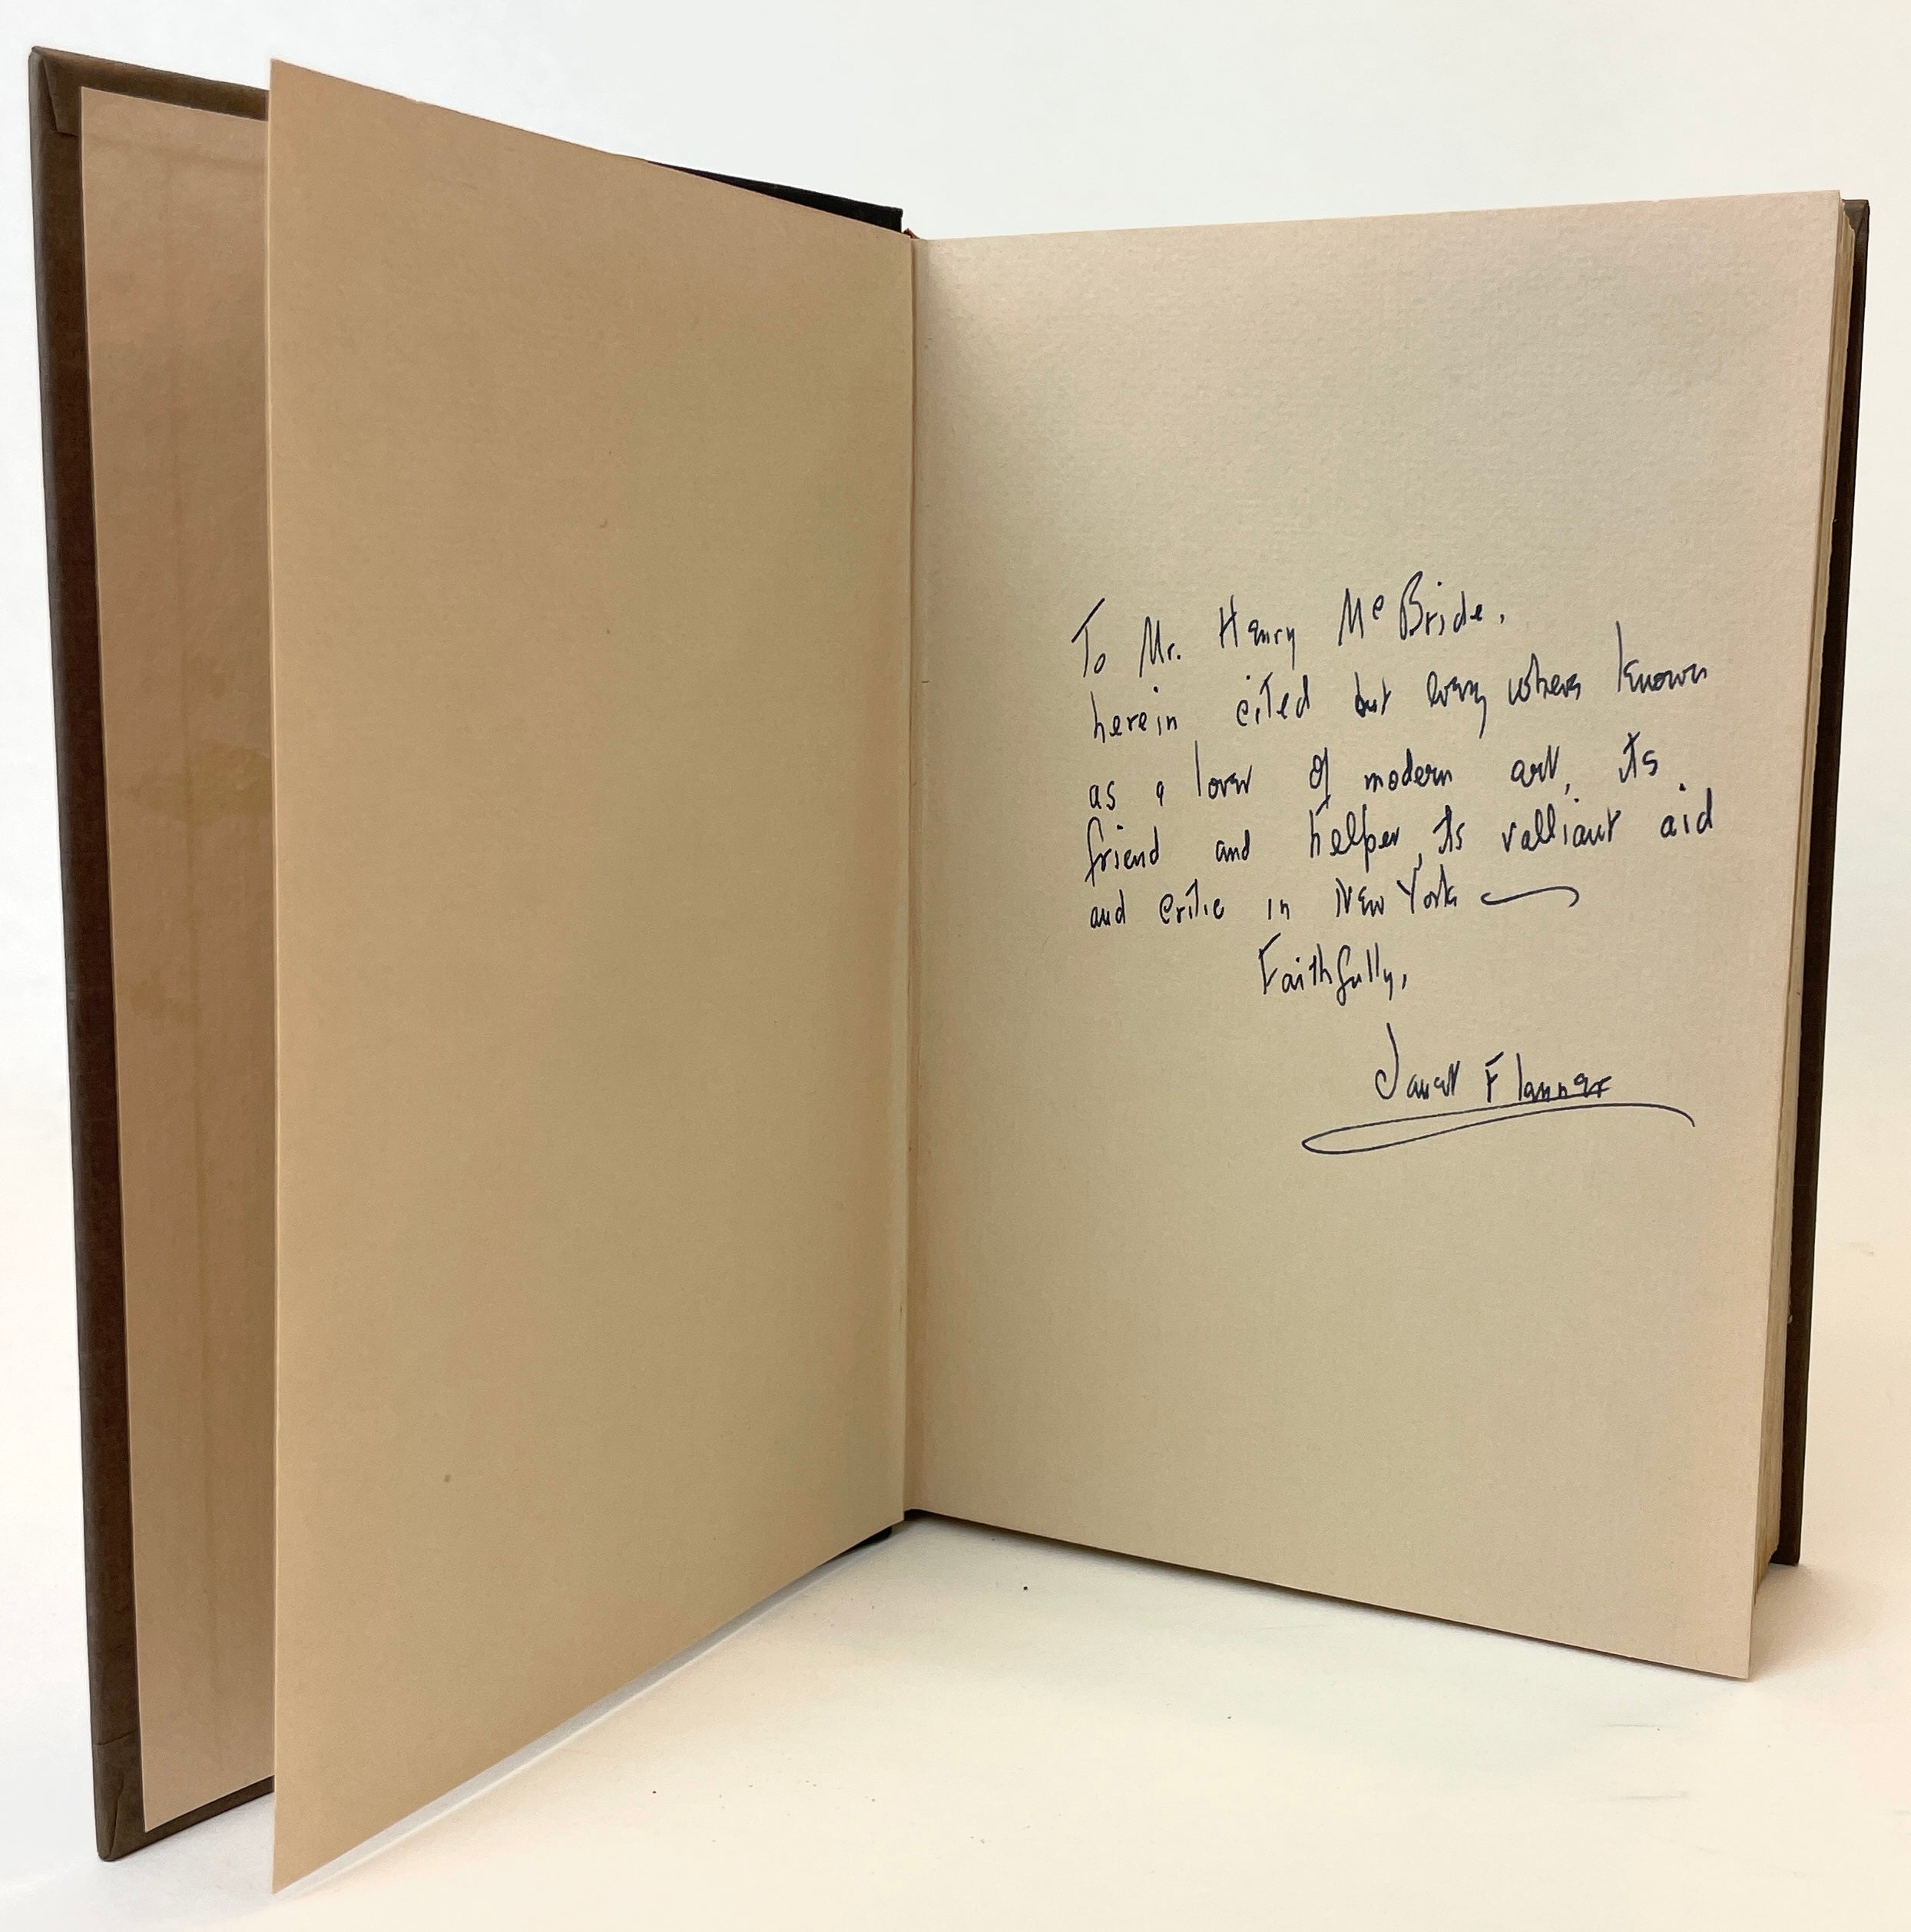 To Mr. Henry McBride,
herein cited but every where known
as a lover of modern art, its
friend and helper, its valliant aid
and critic in New York —
Faithfully,
Janet Flanner